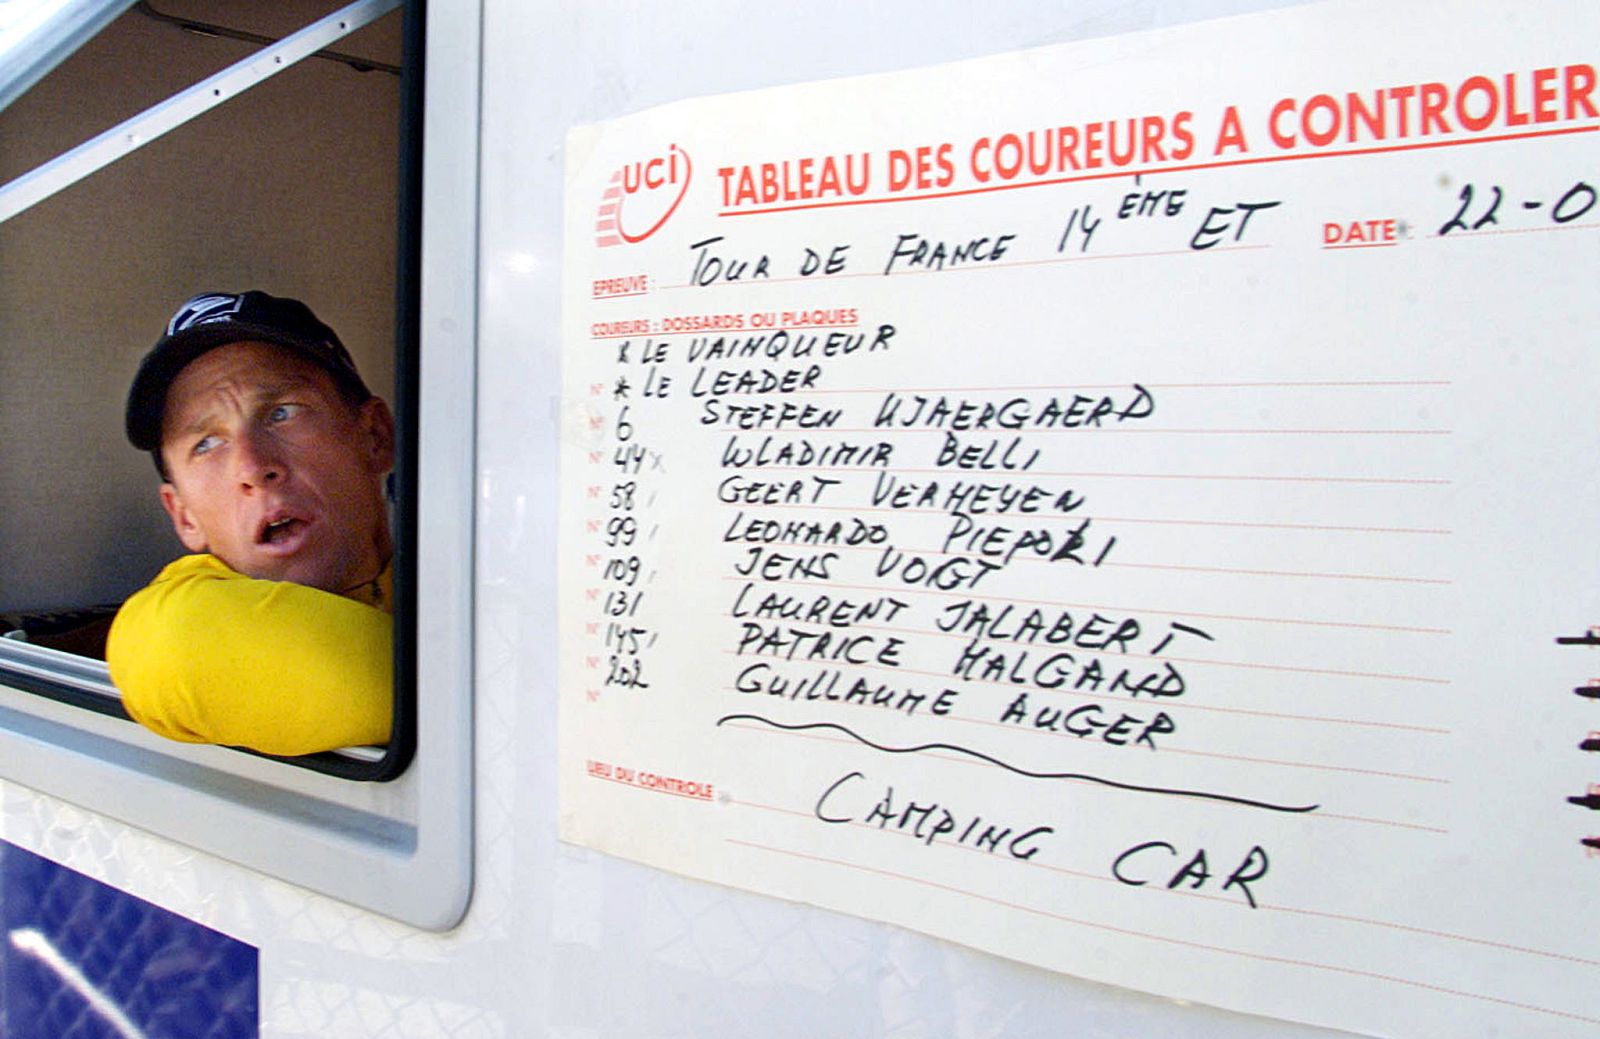 UCi TABLEAU DES COUREURS A CONTROLER
EPREUVE : TOUR DE FRANCE 14 ÈME ET DATE : 22-0
COUREURS : DOSSARDS OU PLAQUES
* LE VAINQUEUR
N° * LE LEADER
N° 6 STEFFEN KJAERGAERD
N° 44 WLADIMIR BELLI
N° 58 GEERT VERHEYEN
N° 99 LEONARDO PIEPOLI
N° 109 JENS VOIGT
N° 131 LAURENT JALABERT
N° 145 PATRICE HALGAND
N° 202 GUILLAUME AUGER
N°
LIEU DU CONTROLE : CAMPING CAR